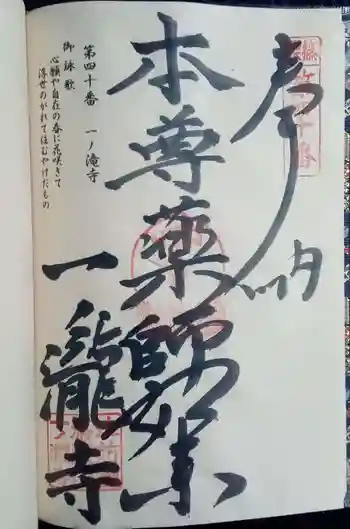 奉納
本尊薬師如来
一瀧寺
第四十番 一ノ滝寺
御詠歌
心願や自在の春に花咲きて
浮世のがれて住むやけだもの